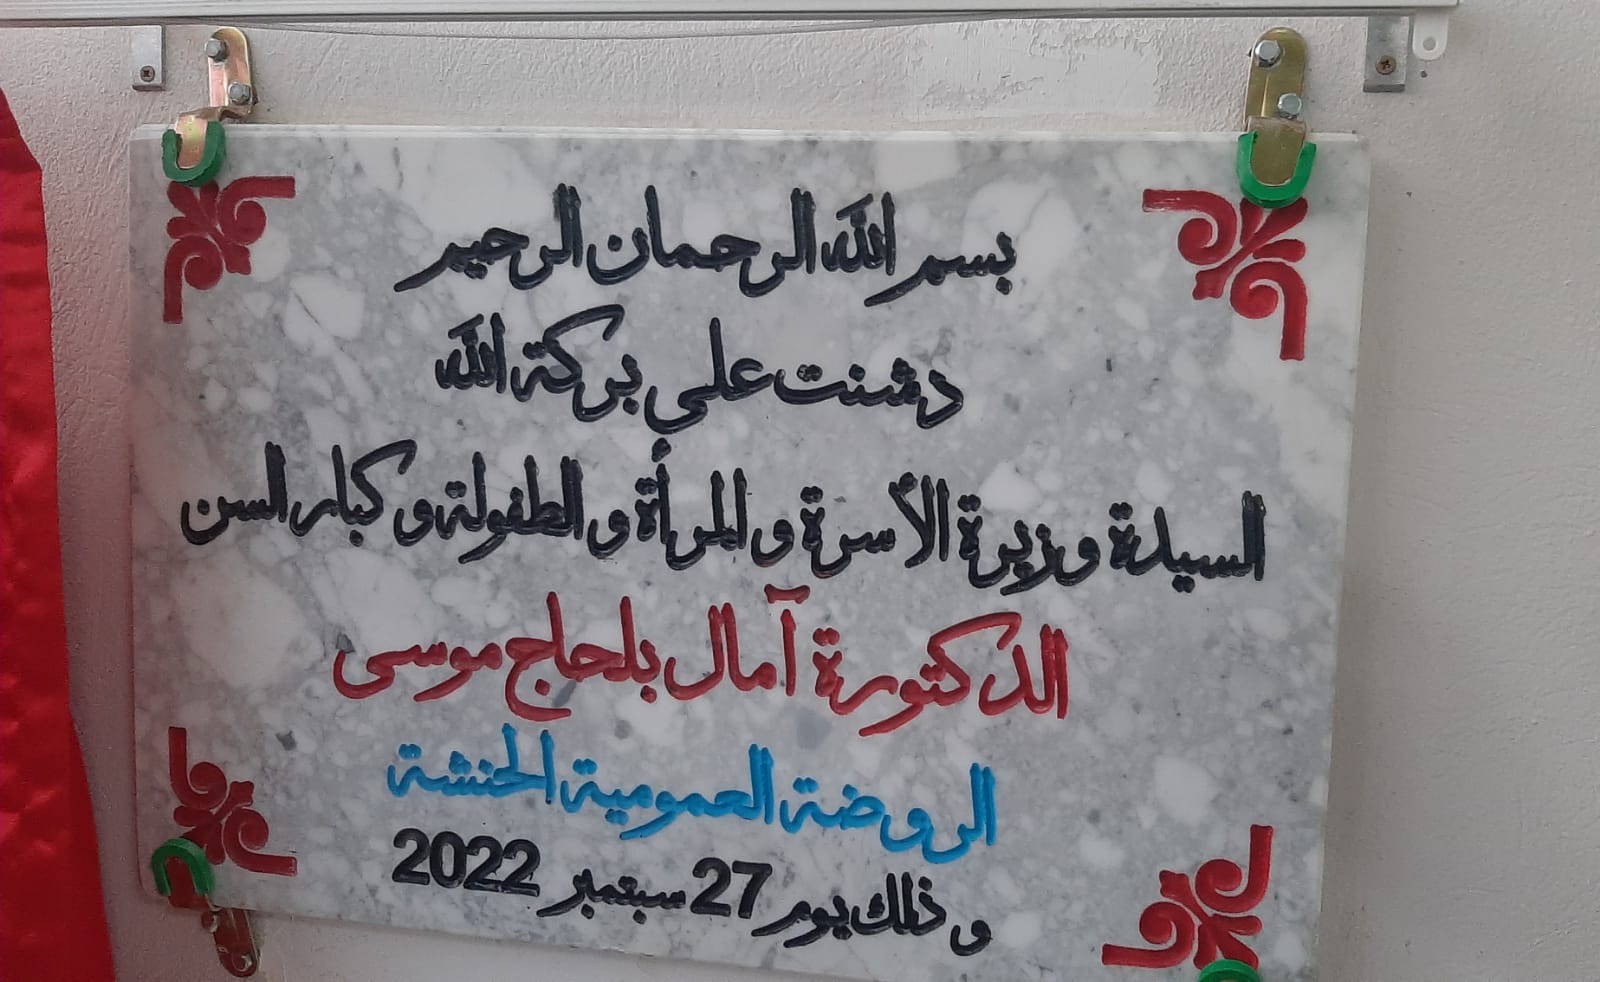 بسم الله الرحمان الرحيم
دشنت على بركة الله
السيدة وزيرة الأسرة و المرأة و الطفولة و كبار السن
الدكتورة آمال بلحاج موسى
الروضة العمومية الحنشة
و ذلك يوم 27 سبتمبر 2022